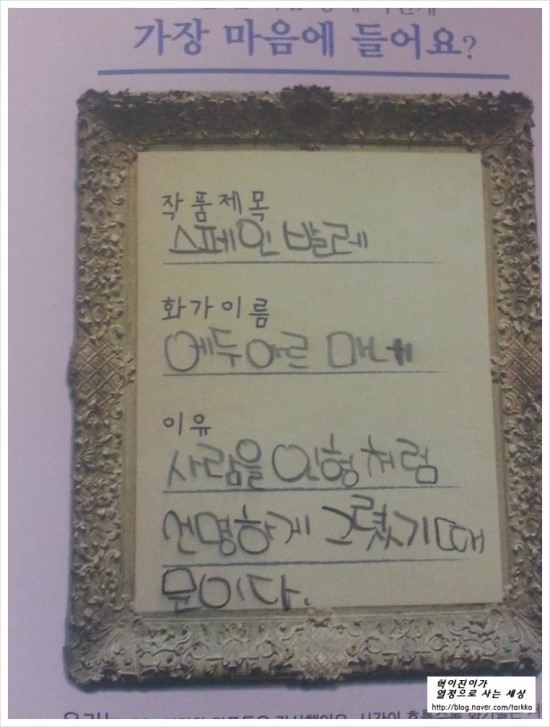 가장 마음에 들어요?
작품제목
스페인 발레
화가이름
에두아르 마네
이유
사람을 인형처럼
선명하게 그렸기때
문이다.
혁이진이가
열정으로 사는 세상
http://blog.naver.com/tarkko